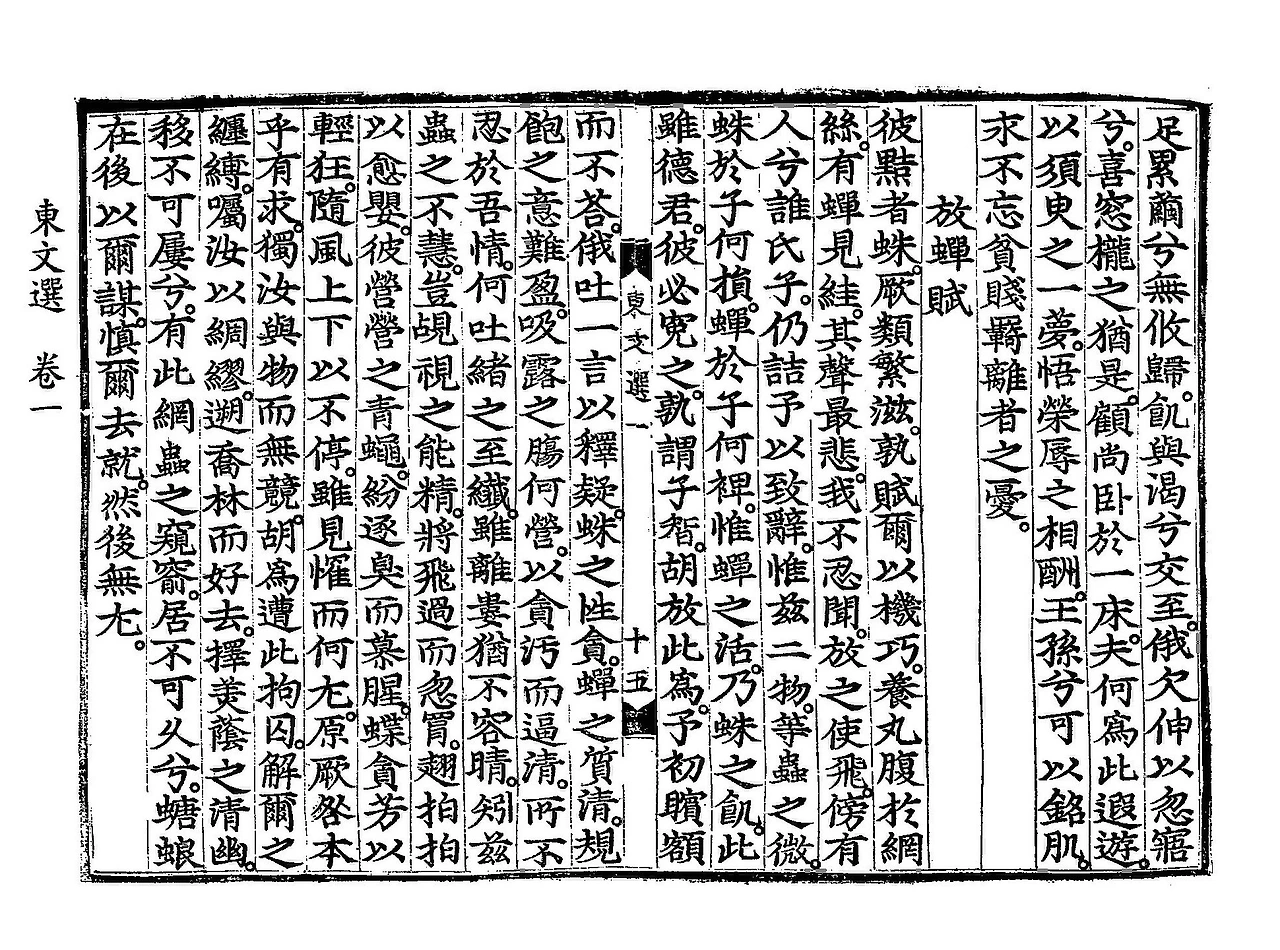 足累繭兮無攸歸。飢與渴兮交至。俄欠伸以忽寤
兮。喜窓櫳之猶是。顧尚卧於一床。夫何爲此遐遊。
以須臾之一夢。悟榮辱之相酬。王孫兮可以銘肌。
求不忘貧賤羇離者之憂。
放蟬賦
彼黠者蛛。厥類繁滋。孰賦爾以機巧。養丸腹於網
絲。有蟬見絓。其聲最悲。我不忍聞。放之使飛。傍有
人兮誰氏子。仍詰予以致辭。惟兹二物。等蟲之微。
蛛於子何損。蟬於子何裨。惟蟬之活。乃蛛之飢。此
雖德君。彼必寃之。孰謂子智。胡放此爲。予初矉額
東文選一
十五
而不荅。俄吐一言以釋疑。蛛之性貪。蟬之質清。規
飽之意難盈。吸露之膓何營。以貪汚而逼清。所不
忍於吾情。何吐緖之至纖。雖離婁猶不容睛。矧兹
蟲之不慧。豈覘視之能精。將飛過而忽罥。翅拍拍
以愈嬰。彼營營之青蠅。紛逐臭而慕腥。蝶貪芳以
輕狂。隨風上下以不停。雖見罹而何尢。原厥咎本
乎有求。獨汝與物而無競。胡爲遭此拘囚。解爾之
纏縛。囑汝以綢繆。遡喬林而好去。擇美蔭之清幽。
移不可屢兮。有此網蟲之窺窬。居不可久兮。螗蜋
在後以爾謀。愼爾去就。然後無尢。
東文選 卷一